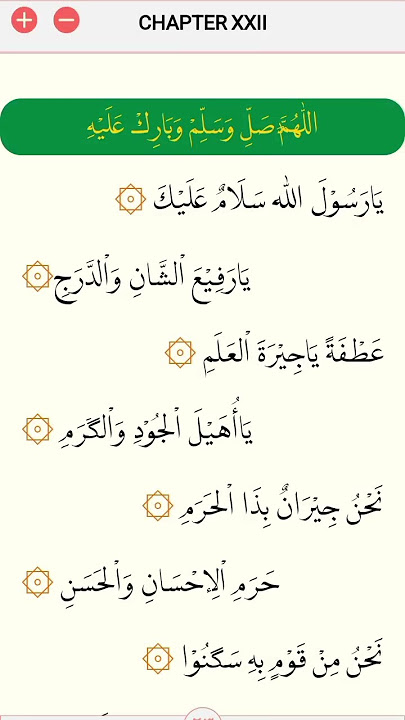 CHAPTER XXII
اللّٰهُمَّ صَلِّ وَسَلِّمْ وَبَارِكْ عَلَيْهِ
يَارَسُوْلَ اللّٰه سَلَامٌ عَلَيْكَ ۞
يَارَفِيْعَ الْشَّانِ وَالْدَّرَجِ ۞
عَطْفَةً يَاجِيْرَةَ الْعَلَمِ ۞
يَاأُهَيْلَ الْجُوْدِ وَالْكَرَمِ ۞
نَحْنُ جِيْرَانٌ بِذَا الْحَرَمِ ۞
حَرَمِ الْاِحْسَانِ وَالْحَسَنِ ۞
نَحْنُ مِنْ قَوْمٍ بِهِ سَكَنُوْا ۞